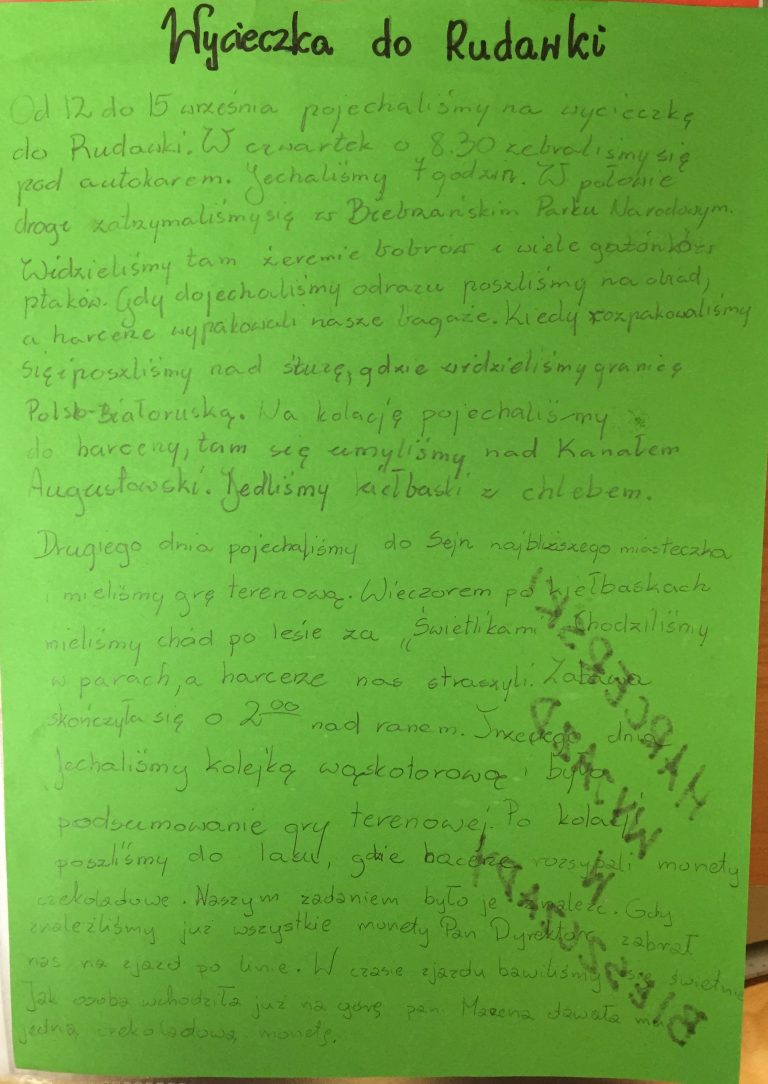 Wycieczka do Rudawki
Od 12 do 15 września pojechaliśmy na wycieczkę
do Rudawki. W czwartek o 8.30 zebraliśmy się
pod autokarem. Jechaliśmy 7 godzin. W połowie
drogi zatrzymaliśmy się w Biebrzańskim Parku Narodowym.
Widzieliśmy tam żeremie bobrów i wiele gatónków
ptaków. Gdy dojechaliśmy odrazu poszliśmy na obiad,
a harcerze wypakowali nasze bagaże. Kiedy rozpakowaliśmy
się i poszliśmy nad śluzę, gdzie widzieliśmy granicę
Polsko-Białoruską. Na kolację pojechaliśmy
do harceny, tam się umyliśmy nad Kanałem
Augustowski. Jedliśmy kiełbaski z chlebem.
Drugiego dnia pojechaliśmy do Sejn najbliższego miasteczka
i mieliśmy grę terenową. Wieczorem po kiełbaskach
mieliśmy chód po lesie za „Świetlikami" Chodziliśmy
w parach, a harcerze nas straszyli. Zabawa
skończyła się o 2⁰⁰ nad ranem. Trzeciego dnia
Jechaliśmy kolejką wąskotorową i było
podsumowanie gry terenowej. Po kolacji
poszliśmy do lasu, gdzie rozsypali monety
czekoladowe. Naszym zadaniem było je znaleźć. Gdy
znaleźliśmy już wszystkie monety Pan Dyrektor zabrał
nas na zjazd po linie. W czasie zjazdu bawiliśmy się świetnie
Jak osoba wchodziła już na górę pan Marcena dawała mu
jedną czekoladową monetę.